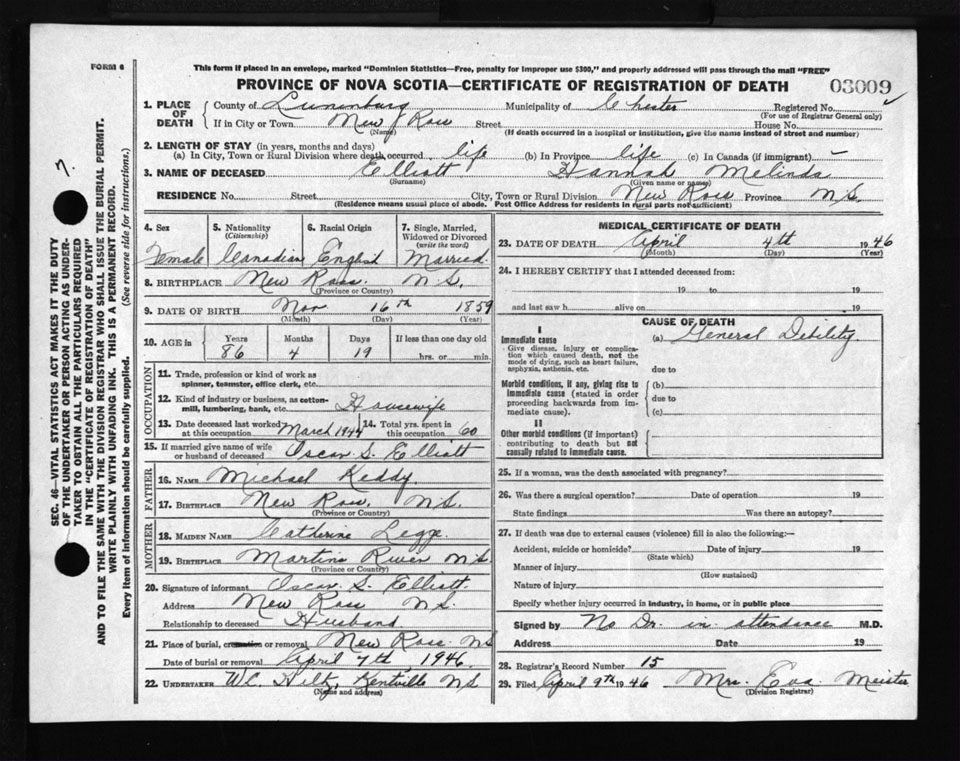 FORM 6
This form if placed in an envelope, marked "Dominion Statistics—Free, penalty for improper use $300," and properly addressed will pass through the mail "FREE"
PROVINCE OF NOVA SCOTIA—CERTIFICATE OF REGISTRATION OF DEATH
03009
1. PLACE OF DEATH County of Lunenburg Municipality of Chester Registered No. ✓
(For use of Registrar General only)
If in City or Town New Ross Street House No.
(Name) (If death occurred in a hospital or institution, give the name instead of street and number)
2. LENGTH OF STAY (in years, months and days)
(a) In City, Town or Rural Division where death occurred life (b) In Province life (c) In Canada (if immigrant) –
3. NAME OF DECEASED Elliott Hannah Melinda
(Surname) (Given name or names)
RESIDENCE No. Street City, Town or Rural Division New Ross Province N.S.
(Residence means usual place of abode. Post Office Address for residents in rural parts not sufficient)
4. Sex 5. Nationality (Citizenship) 6. Racial Origin 7. Single, Married, Widowed or Divorced (write the word)
Female Canadian English Married
8. BIRTHPLACE New Ross N.S.
(Province or Country)
9. DATE OF BIRTH Nov 16th 1859
(Month) (Day) (Year)
10. AGE in Years Months Days If less than one day old
86 4 19 hrs. or min.
OCCUPATION
11. Trade, profession or kind of work as spinner, teamster, office clerk, etc.
12. Kind of industry or business, as cotton-mill, lumbering, bank, etc. Housewife
13. Date deceased last worked at this occupation March 1944 14. Total yrs. spent in this occupation 60
15. If married give name of wife or husband of deceased Oscar S. Elliott
FATHER
16. NAME Michael Keddy
17. BIRTHPLACE New Ross, N.S.
(Province or Country)
MOTHER
18. MAIDEN NAME Catherine Legge
19. BIRTHPLACE Martins River N.S.
(Province or Country)
20. Signature of informant Oscar S. Elliott
Address New Ross N.S.
Relationship to deceased Husband
21. Place of burial, cremation or removal New Ross N.S
Date of burial or removal April 7th, 1946
22. UNDERTAKER W.C. Kentville N.S
(Name and address)
MEDICAL CERTIFICATE OF DEATH
23. DATE OF DEATH April 4th 1946
(Month) (Day) (Year)
24. I HEREBY CERTIFY that I attended deceased from:
19 to 19
and last saw h alive on 19
CAUSE OF DEATH
I
Immediate cause (a) General Debility.
Give disease, injury or complication which caused death, not the mode of dying, such as heart failure, asphyxia, asthenia, etc.
due to
Morbid conditions, if any, giving rise to immediate cause (stated in order proceeding backwards from immediate cause).
(b)
due to
(c)
II
Other morbid conditions (if important) contributing to death but not causally related to immediate cause.
25. If a woman, was the death associated with pregnancy?
26. Was there a surgical operation? Date of operation 19
State findings Was there an autopsy?
27. If death was due to external causes (violence) fill in also the following:—
Accident, suicide or homicide? Date of injury 19
(State which)
Manner of injury
(How sustained)
Nature of injury
Specify whether injury occurred in industry, in home, or in public place
Signed by No Dr. in attendance M.D.
Address Date 19
28. Registrar's Record Number 15
29. Filed April 9th 1946 Mrs. Eva Meister
(Division Registrar)
SEC. 46—VITAL STATISTICS ACT MAKES IT THE DUTY
OF THE UNDERTAKER OR PERSON ACTING AS UNDER-
TAKER TO OBTAIN ALL THE PARTICULARS REQUIRED
IN THE "CERTIFICATE OF REGISTRATION OF DEATH"
AND TO FILE THE SAME WITH THE DIVISION REGISTRAR WHO SHALL ISSUE THE BURIAL PERMIT.
WRITE PLAINLY WITH UNFADING INK. THIS IS A PERMANENT RECORD.
Every item of information should be carefully supplied. (See reverse side for instructions.)